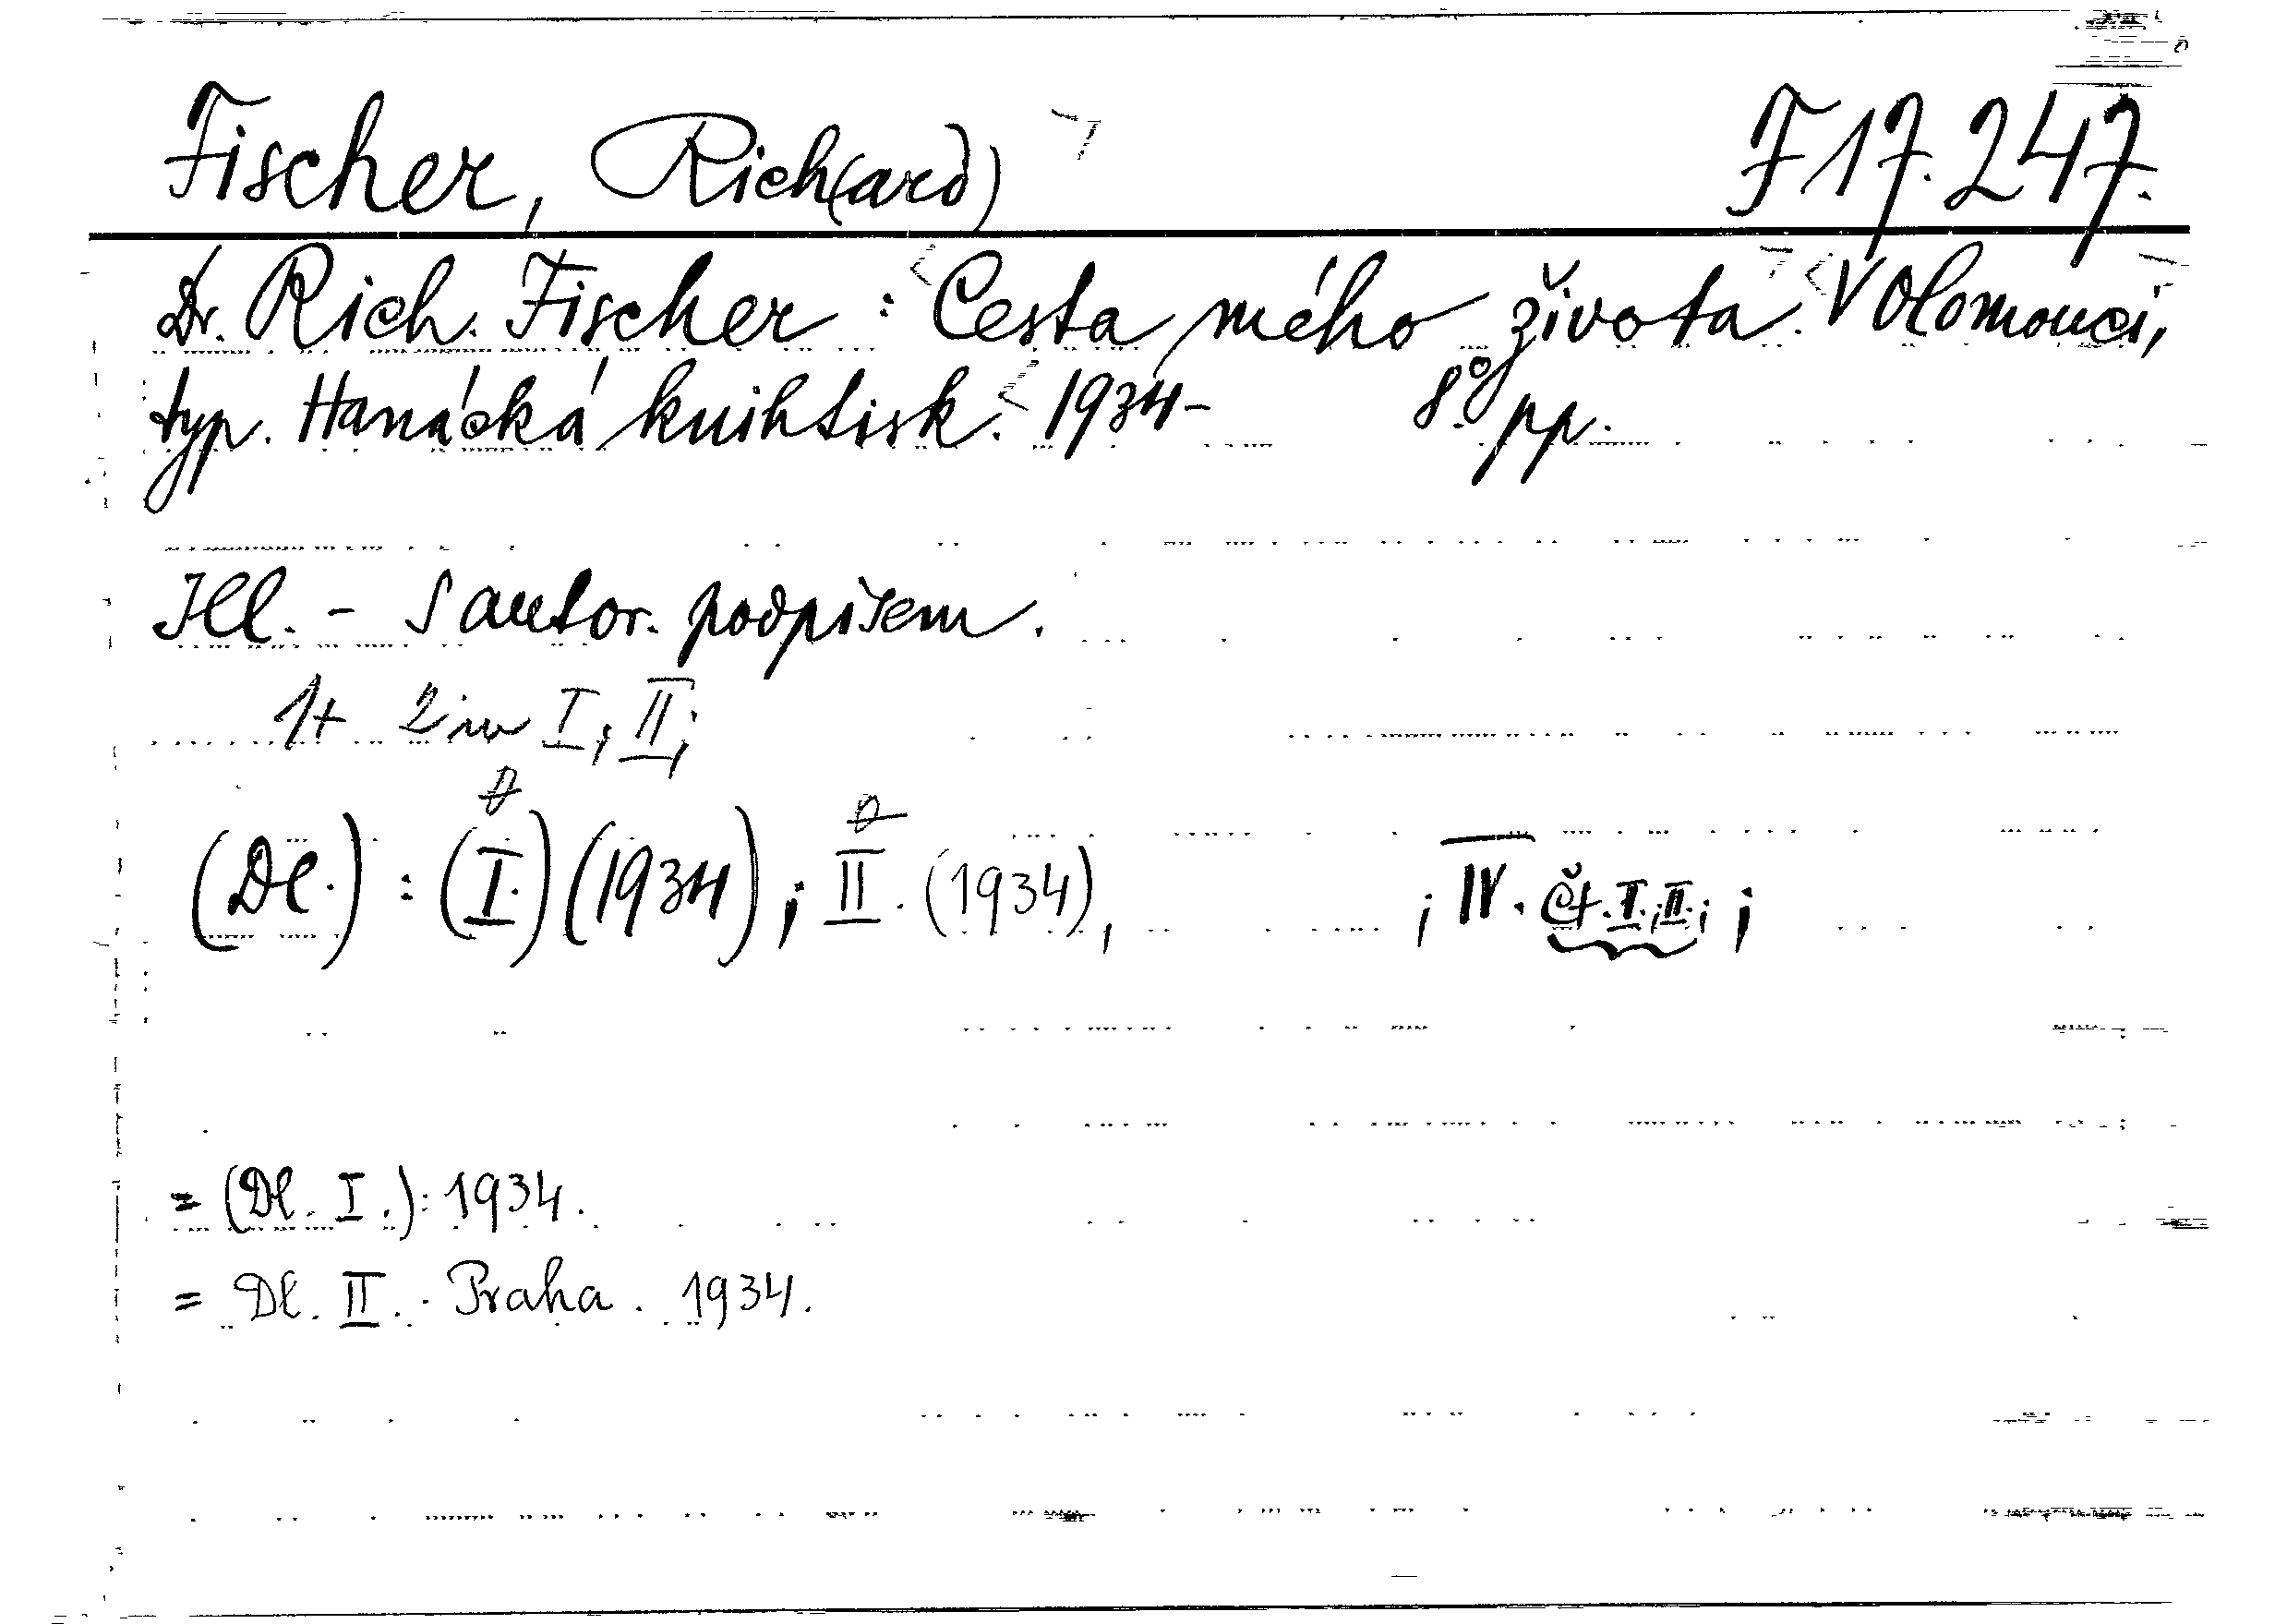 Fischer, Rich(ard) F 17.247.
Dr. Rich. Fischer : Cesta mého života. V Olomouci,
typ. Hanácká knihtisk. 1934- 8° pp.
Ill. - S autor. podpisem.
1+ 2 inv I, II;
(Dl.) : (I.) (1934) ; II. (1934), ; IV. čt. I, II. ; ;
= (Dl. I.): 1934.
= Dl. II. . Praha. 1934.